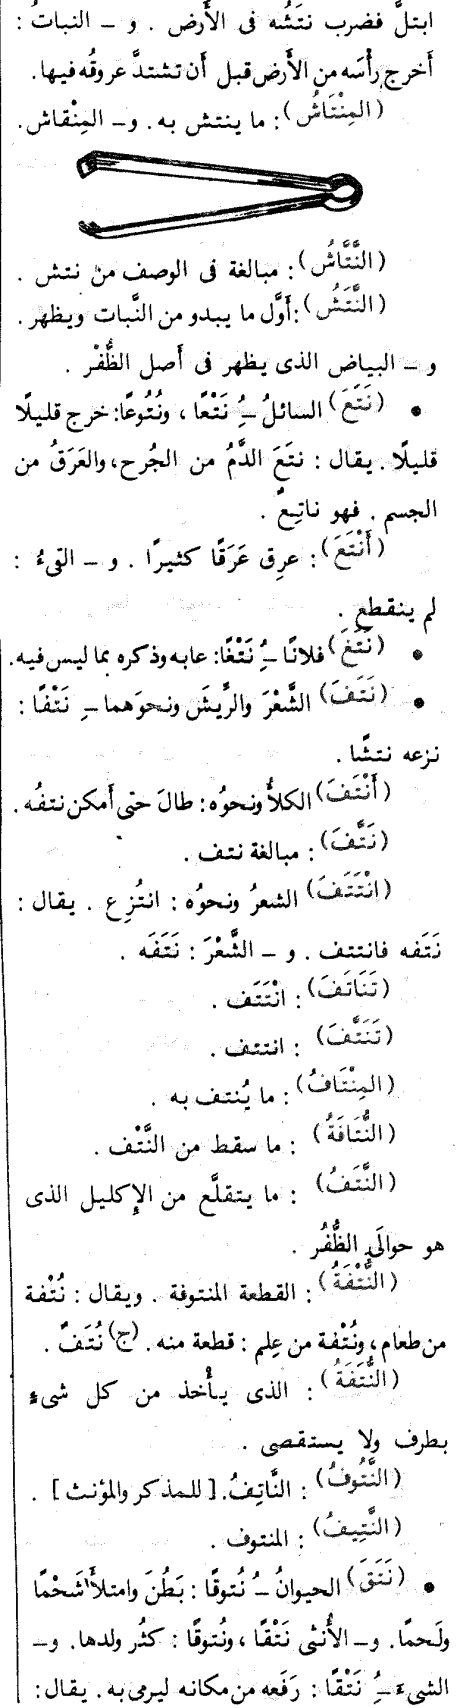 ابتلَّ فضرب نَتَشُه فى الأَرض . و ــ النباتُ :
أَخرج رأْسَه من الأَرض قبل أَن تشتدَّ عروقُه فيها.
(المِنْتَاشُ): ما ينتش به . و ــ المِنْقاش.
(النَّتَّاشُ): مبالغة فى الوصف من نتش .
(النَّتَشُ): أَوَّل ما يبدو من النَّبات ويظهر.
و ــ البياض الذى يظهر فى أَصل الظُّفْر .
• (نَتَعَ) السائلُ ـُِ نَتْعًا ، ونُتُوعًا: خرج قليلًا
قليلًا . يقال : نتَعَ الدَّمُ من الجُرح، والعَرَقُ من
الجسم . فهو ناتِعٌ .
(أَنْتَعَ): عرِق عَرَقًا كثيرًا . و ــ القىءُ :
لم ينقطع .
• (نَتَغَ) فلانًا ـُِ نَتْغًا: عابه وذكره بما ليس فيه.
• (نَتَفَ) الشَّعْرَ والرِّيشَ ونحوَهما ـِ نَتْفًا :
نزعه نتشًا .
(أَنْتَفَ) الكلأُ ونحوُه: طالَ حتى أَمكن نتفُه .
(نَتَّفَ) : مبالغة نتف .
(انْتَتَفَ) الشعرُ ونحوُه : انتُزِع . يقال :
نَتَفه فانتتف . و ــ الشَّعْرَ : نَتَفَه .
(تَنَاتَفَ) : انْتَتَف .
(تَنَتَّفَ) : انتتف .
(المِنْتَافُ) : ما يُنتف به .
(النُّتَافَةُ) : ما سقط من النَّتْف .
(النَّتَفُ) : ما يتقلَّع من الإِكليل الذى
هو حوالَىِ الظُّفُر .
(النُّتْفَةُ) : القطعة المنتوفة . ويقال : نُتْفة
من طعام، ونُتْفة من عِلم : قطعة منه . (ج) نُتَفٌ .
(النُّتَفَةُ) : الذى يأْخذ من كل شىءٍ
بطرف ولا يستقصى .
(النَّتُوفُ) : النَّاتِفُ. [للمذكر والمؤنث] .
(النَّتِيفُ) : المنتوف .
• (نَتَقَ) الحيوانُ ـُ نُتوقًا : بَطُنَ وامتلأَ شَحْمًا
ولَحمًا. و ــ الأُنثى نَتْقًا ، ونُتوقًا : كثُر ولدها. و ــ
الشىءَ ـُ نَتْقًا : رَفَعه من مكانه ليرمى به . يقال :